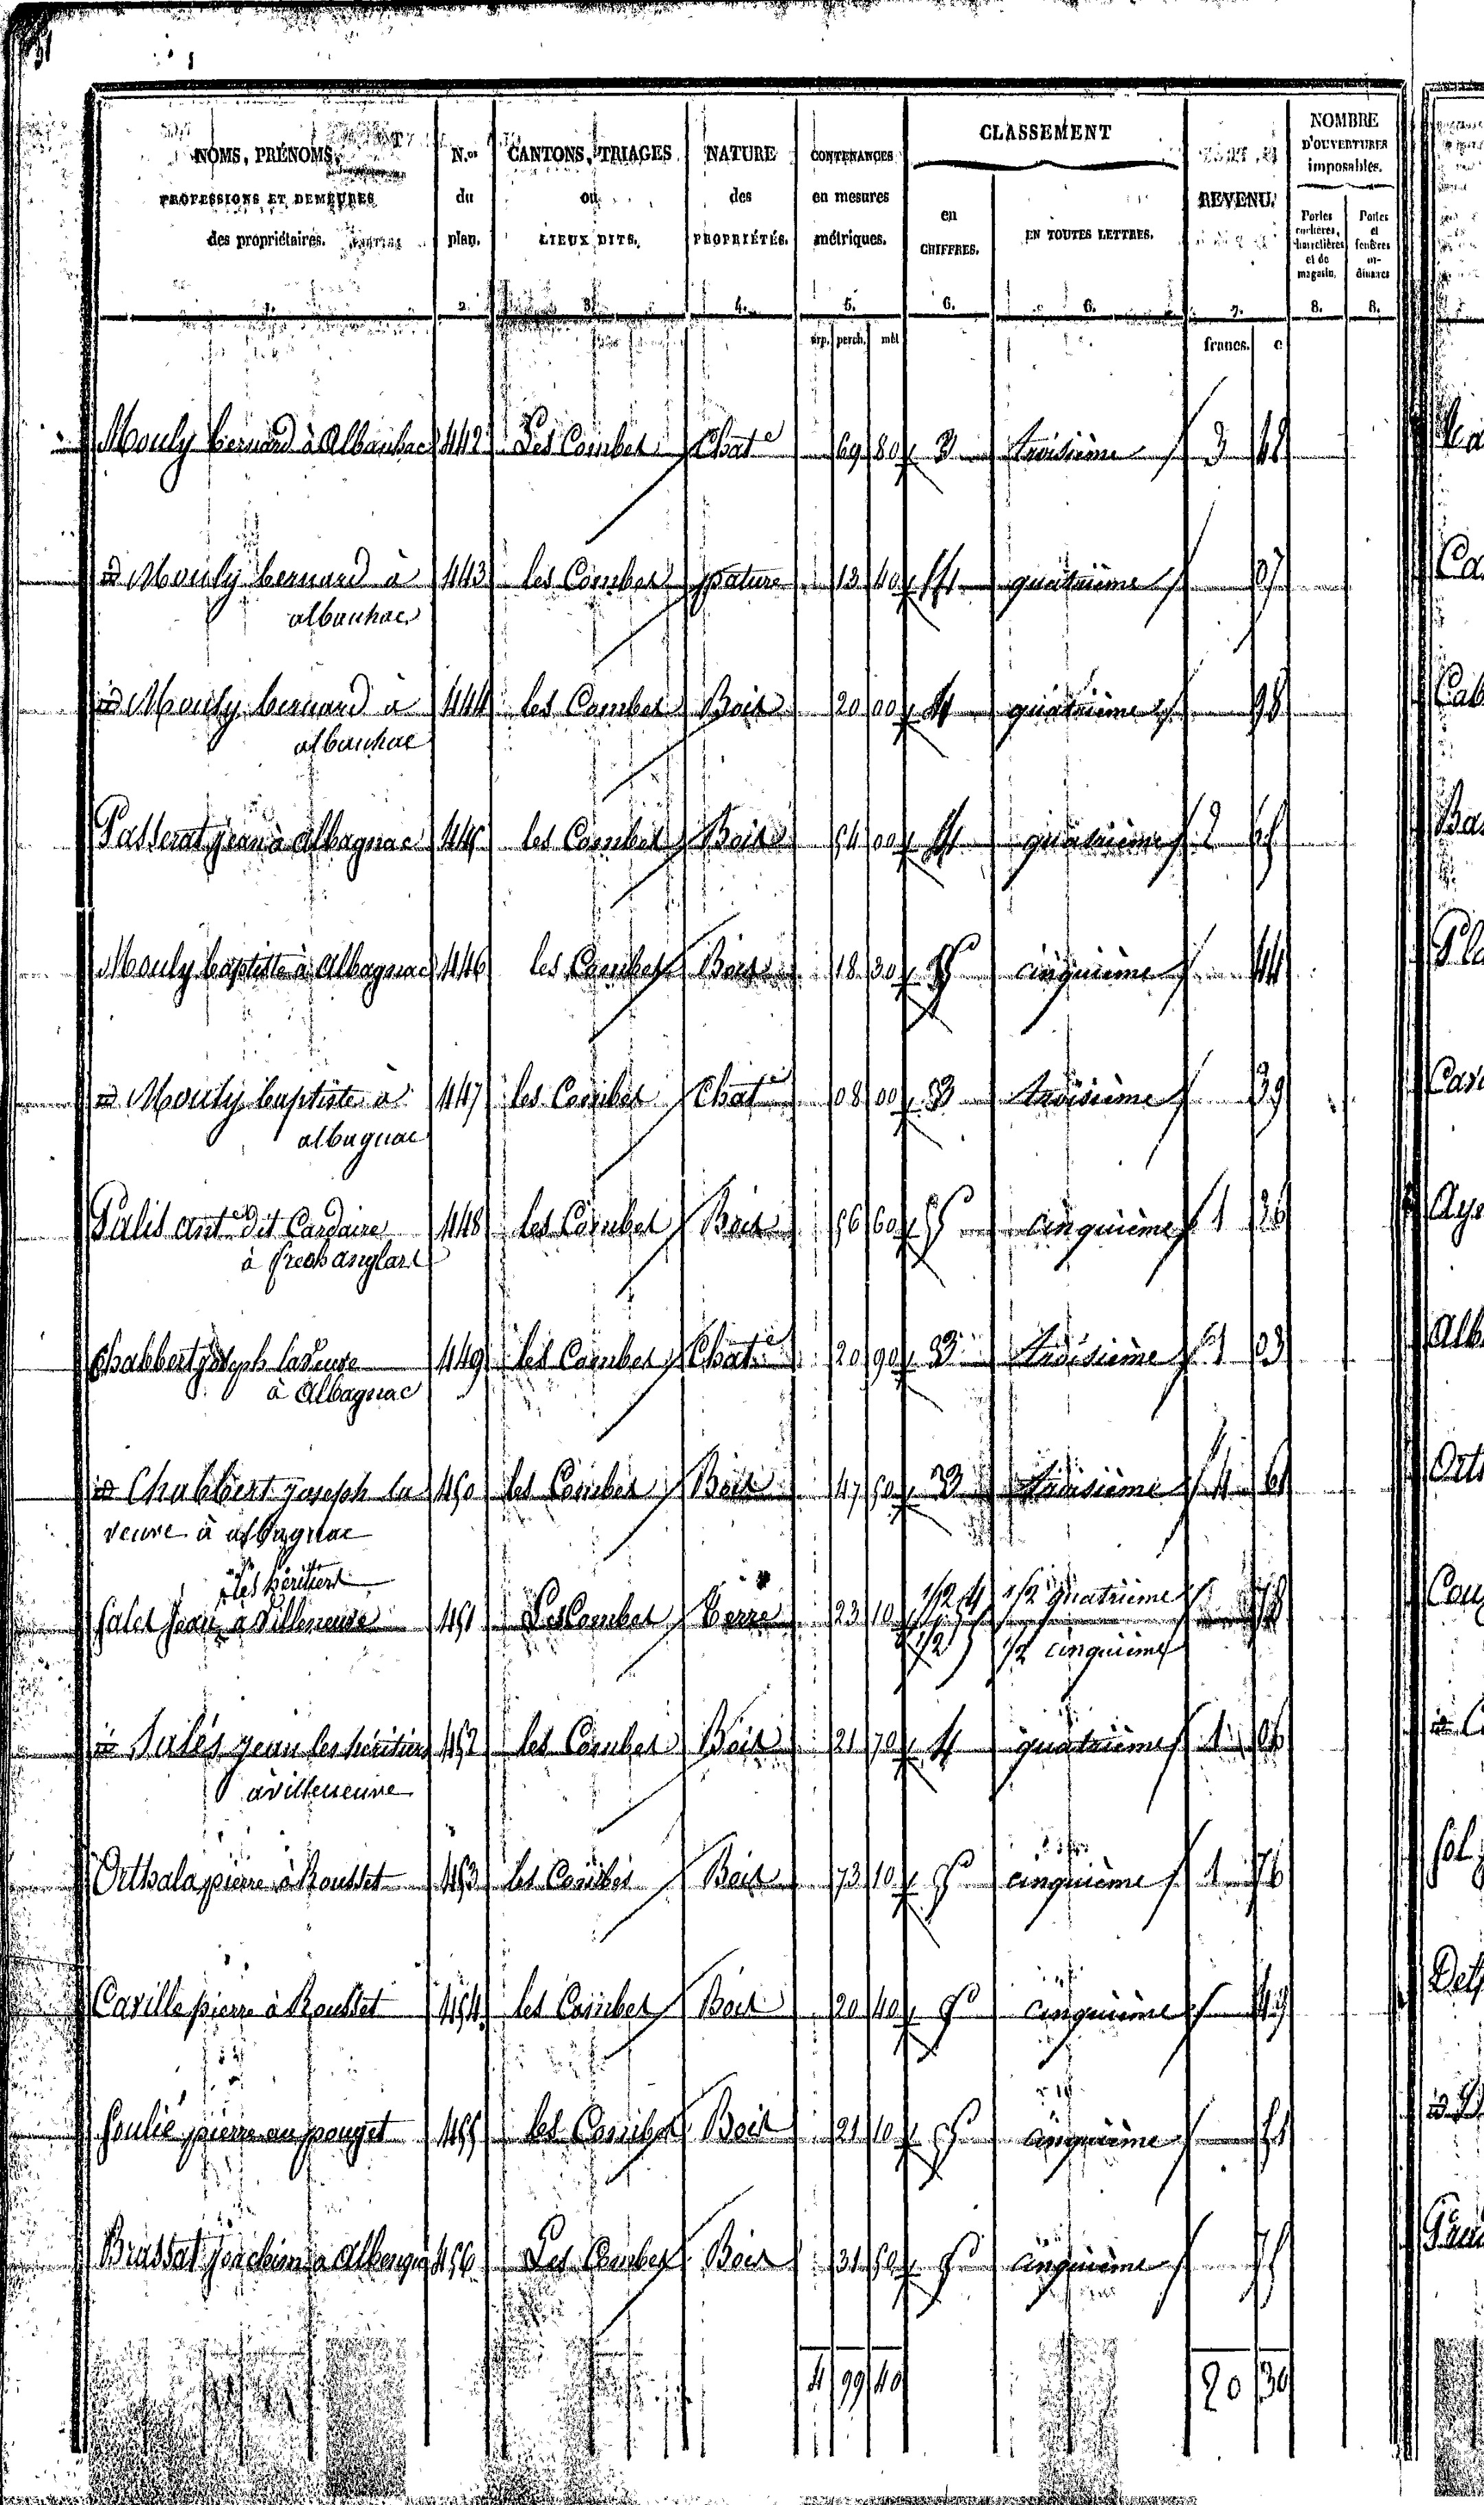 NOMS, PRÉNOMS, PROFESSIONS ET DEMEURES des propriétaires.
N.os du plan.
CANTONS, TRIAGES ou LIEUX DITS.
NATURE des PROPRIÉTÉS.
CONTENANCES en mesures métriques.
CLASSEMENT
en CHIFFRES.
EN TOUTES LETTRES.
REVENU.
NOMBRE D'OUVERTURES imposables.
Portes cochères, charretières et de magasin.
Portes et fenêtres ordinaires
1. 2. 3. 4. 5. 6. 6. 7. 8. 8.
arp. perch. mèt francs. c
Mouly bernard à Albanhac 442 Les Combes Chat.e 69 80 3 troisième 3 48
id Mouly bernard à 443 les Combes pature 13 40 4 quatrième 07
albanhac
id Mouly bernard à 444 les Combes Bois 20 00 4 quatrième 98
albanhac
Passerat jean à albagnac 445 les Combes Bois 54 00 4 quatrième 2 65
Mouly baptiste à Albagnac 446 les Combes Bois 18 30 5 cinquième 44
id Mouly baptiste à 447 les Combes Chat.e 08 00 3 troisième 39
albagnac
Palis ant.e dit Cardaire 448 les Combes Bois 56 60 5 cinquième 1 36
à
Chabbert joseph la veuve 449 les Combes Chat.e 20 90 3 troisième 1 03
à Albagnac
id Chabbert joseph la 450 les Combes Bois 47 50 3 troisième 4 61
veuve à albagnac
les héritiers
Salès Jean à Villeneuve 451 Les Combes Terre 23 10 1/2 4 1/2 quatrième 78
1/2 5 1/2 cinquième
id Salès jean les héritiers 452 les Combes Bois 21 70 4 quatrième 1 06
à villeneuve
Orthala pierre à Rousset 453 les Combes Bois 73 10 5 cinquième 1 76
Caville pierre à Rousset 454 les Combes Bois 20 40 5 cinquième 49
Soulié pierre au pouget 455 les Combes Bois 21 10 5 cinquième 51
Brassat joachim à 456 Les Combes Bois 31 50 5 cinquième 75
4 99 40 20 30